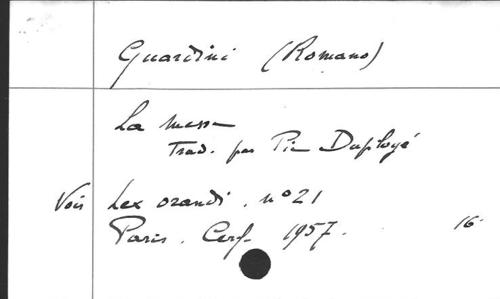 Guardini (Romano)
La messe
Trad. par Pie Duployé
Voir Lex orandi. n°21
Paris. Cerf. 1957. 16